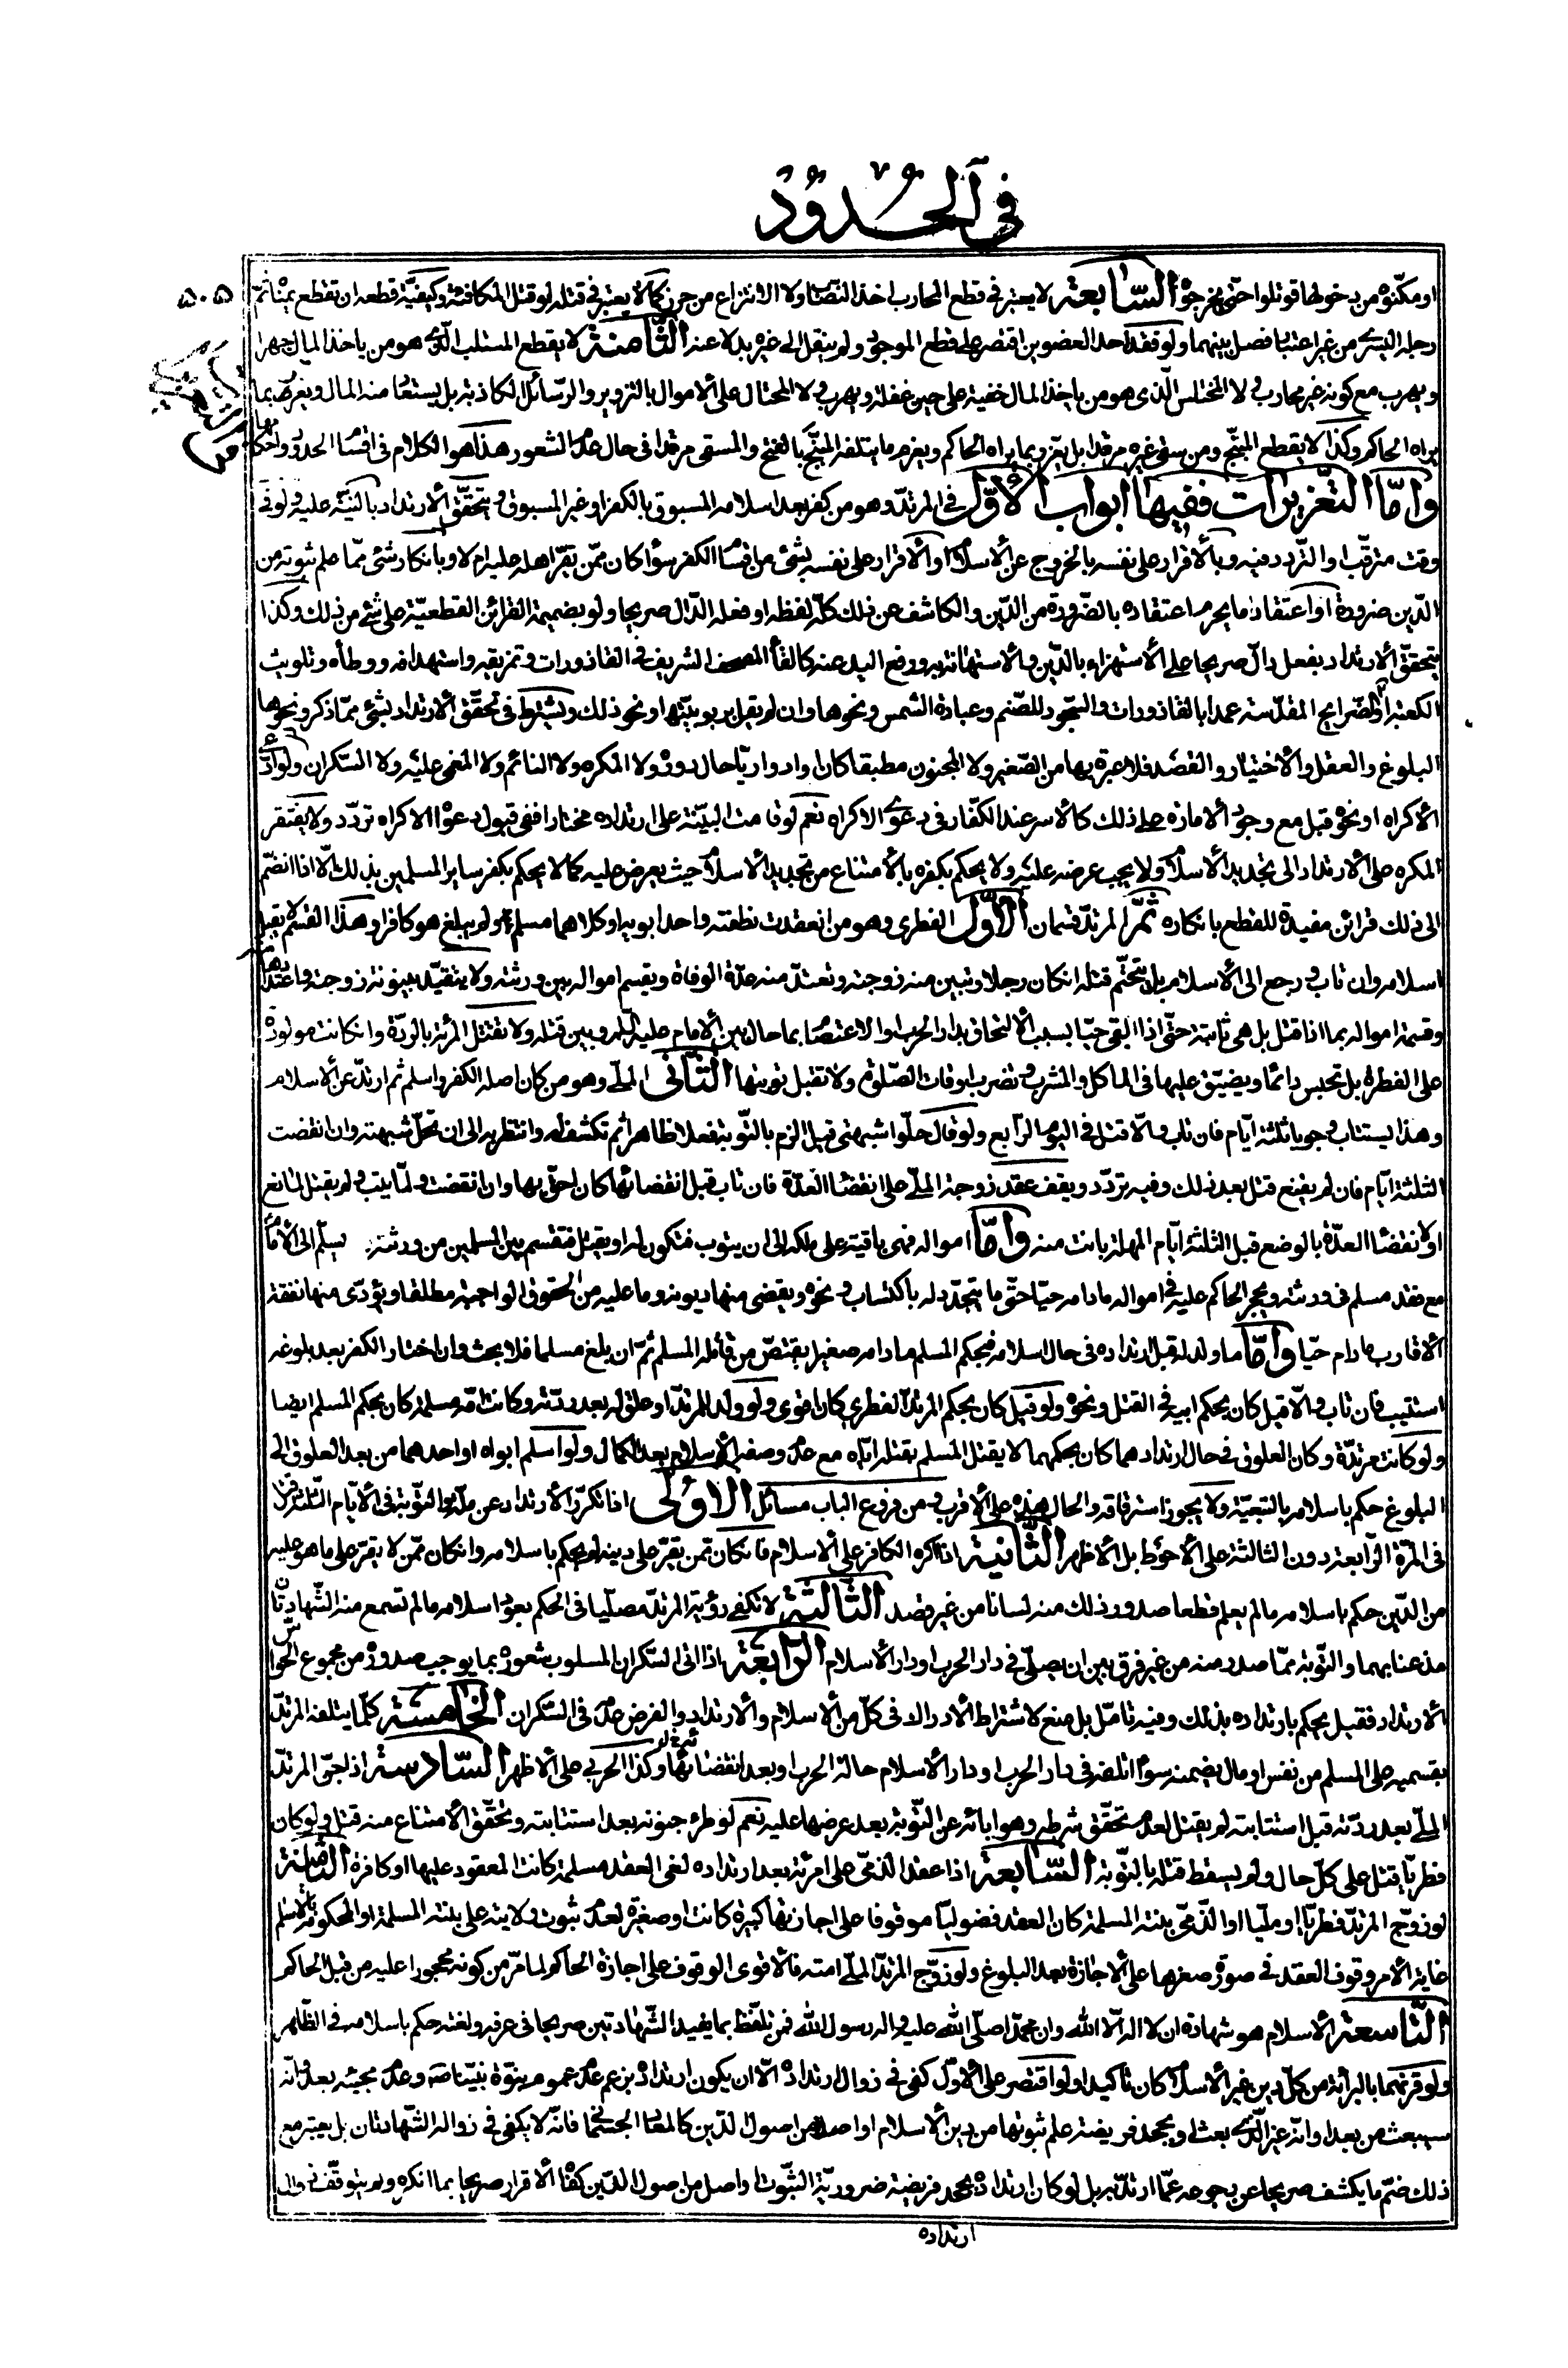 في الحدود
۵۰۵
او مكّنوه من دخولها قوتلوا حتّى يخرجوا السّابعة لا يعتبر في قطع المحارب اخذ النّصاب ولا الانتزاع من حرز كما لا يعتبر في قتله لو قتل المكافئة وكيفيّة قطعه ان تقطع يمناه ثمّ
رجله اليسرى من غير اعتبار فصل بينهما ولو فقد احد العضوين اقتصر على قطع الموجود ولم ينقل الى غيره بدلا عنه الثّامنة لا يقطع المستلب الّذي هو من ياخذ المال جهرا
ويهرب مع كونه غير محارب ولا المختلس الّذى هو من ياخذ المال خفية على حين غفلة ويهرب ولا المحتال على الأموال بالتزوير والرّسائل الكاذبة بل يستعاد منه المال ويعزّر بما
يراه الحاكم وكذا لا يقطع المبنّج ومن سقى غيره مرقدا بل يعزّر بما يراه الحاكم ويغرم ما يتلفه المبنّج بالفتح والمسقى مرقدا في حال عدم الشعور هذا هو الكلام في اقسام الحدود واحكامها
وامّا التعزيرات ففيها ابواب الأوّل في المرتدّ وهو من كفر بعد اسلامه المسبوق بالكفر او غير المسبوق به ويتحقّق الأرتداد بالنيّة عليه ولو في
وقت مترقّب او التّردد فيه وبالأقرار على نفسه بالخروج عن الأسلام او الأقرار على نفسه بشئ من اقسام الكفر سواء كان ممّن يقرّ اهله عليه ام لا وبانكار شئ ممّا علم ثبوته من
الدّين ضرورة او اعتقاد ما يحرم اعتقاده بالضّرورة من الدّين والكاشف عن ذلك كلّه لفظه او فعله الدّال صريحا ولو بضميمة القرائن القطعيّة على شئ من ذلك وكذا
يتحقّق الأرتداد بفعل دالّ صريحا على الأستهزاء بالدّين والأستهانة به ورفع اليد عنه كالقاء المصحف الشريف في القاذورات وتمزيقه واستهدافه ووطأه وتلويث
الكعبة او الضّرايح المقدّسة عمدا بالقاذورات والسّجود للصّنم وعبادة الشمس ونحوها وان لم يقل بربوبيّتها ونحو ذلك ويشترط في تحقّق الأرتداد بشئ ممّا ذكر ونحوها
البلوغ والعقل والأختيار والقصد فلا عبرة بها من الصّغير ولا المجنون مطبقا كان او ادواريّا حال دوره ولا المكره ولا النائم ولا المغمى عليه ولا السّكران ولو ادّعى
الأكراه او نحوه قبل مع وجود الأمارة على ذلك كالأسر عند الكفّار في دعوى الاكراه نعم لو قامت البيّنة على ارتداده مختارا ففي قبول دعواه الاكراه تردّد ولا يفتقر
المكره على الأرتداد الى تجديد الأسلام ولا يجب عرضه عليه ولا يحكم بكفره بالأمتناع من تجديد الأسلام حيث يعرض عليه كما لا يحكم بكفر ساير المسلمين بذلك الّا اذا انضمّ
الى ذلك قرائن مفيدة للقطع بانكاره ثمّ المرتدّ قسمان الأوّل الفطرى وهو من انعقدت نطفته واحد ابويه او كلاهما مسلم ولو لم يبلغ هو كافرا وهذا القسم لا يقبل
اسلامه وان تاب ورجع الى الأسلام بل يتحتّم قتله ان كان رجلا وتبين منه زوجته وتعتدّ منه عدّة الوفاة ويقسم امواله بين ورثته ولا يتقيّد بينونة زوجته واعتدادها
وقسمة امواله بما اذا قتل بل هى ثابتة حتّى اذا بقى حيّا بسبب الألتحاق بدار الحرب او الاعتصام بما حال بين الأمام عليه السّلم وبين قتله ولا تقتل المرئة بالردّة وان كانت مولودة
على الفطرة بل تحبس دائما ويضيّق عليها في الماكل والمشرب وتضرب اوقات الصّلوة ولا تقبل توبتها الثّاني الملّى وهو من كان اصله الكفر واسلم ثم ارتدّ عن الأسلام
وهذا يستتاب وجوبا ثلثة ايّام فان تاب والّا قتل في اليوم الرّابع ولو قال حلّوا شبهتي قيل الزم بالتّوبة فعلا ظاهرا ثم تكشف له وانتظر به الى ان تحلّ شبهته وان انقضت
الثلثة ايّام فان لم يقنع قتل بعد ذلك وفيه تردّد ويقف عقد زوجة الملّى على انقضاء العدّة فان تاب قبل انقضائها كان احقّ بها وان انقضت ولمّا يتب ولم يقتل لمانع
او لانقضاء العدّة بالوضع قبل الثلثة ايّام المهلة بانت منه وامّا امواله فهى باقية على ملكه الى ان يتوب فتكون له او يقتل فتقسم بين المسلمين من ورثته يسلّم الى الأمام
مع فقد مسلم في ورثته ويحجر الحاكم عليه في امواله ما دام حيّا حتّى ما يتجدّد له باكتساب ونحوه ويقضى منها ديونه وما عليه من الحقوق الواجبة مطلقا ويؤدّى منها نفقة
الأقارب ما دام حيّا وامّا ما ولد له قبل ارتداده في حال اسلامه فبحكم المسلم ما دام صغيرا يقتصّ من قاتله المسلم ثمّ ان بلغ مسلما فلا بحث وان اختار الكفر بعد بلوغه
استتيب فان تاب والّا قيل كان بحكم ابيه في القتل ونحوه ولو قيل كان بحكم المرتدّ الفطري كان اقوى ولو ولد للمرتدّ او علق له بعد ردّته وكانت امّه مسلمة كان بحكم المسلم ايضا
ولو كانت مرتدّة وكان العلوق في حال ارتدادهما كان بحكمهما لا يقتل المسلم بقتله ايّاه مع عدم وصفه الأسلام بعد الكمال ولو اسلم ابواه او احدهما من بعد العلوق الى
البلوغ حكم باسلامه بالتبعيّة ولا يجوز استرقاقه والحال هذه على الأقرب ومن فروع الباب مسائل الأولى اذا تكرّر الأرتداد عن ملّة والتوبة في الأيّام الثلثة قتل
في المرّة الرّابعة دون الثالثة على الأحوط بل الأظهر الثّانية اذا اكره الكافر على الأسلام فان كان ممّن يقرّ على دينه لم يحكم باسلامه وان كان ممّن لا يقرّ على ما هو عليه
من الدّين حكم باسلامه ما لم يعلم قطعا صدور ذلك منه لسانا من غير قصد الثّالثة لا تكفى رؤية المرتدّ مصلّيا في الحكم بعود اسلامه ما لم تسمع منه الشّهادتان
مذعنا بهما والتّوبة ممّا صدر منه من غير فرق بين ان يصلّى في دار الحرب او دار الأسلام الرّابعة اذا اتى السّكران المسلوب شعوره بما يوجب صدوره من مجموع الحواسّ
الأرتداد فقيل يحكم بارتداده بذلك وفيه تامّل بل منع لاشتراط الأدراك في كلّ من الأسلام والأرتداد والفرض عدمه في السّكران الخامسة كلّما يتلفه المرتدّ
بقسميه على المسلم من نفس او مال يضمنه سواء اتلفه في دار الحرب او دار الأسلام حالة الحرب او بعد انقضائها وكذا الحربي على الأظهر السّادسة اذا جنّ المرتدّ
الملّى بعد ردّته قبل استتابته لم يقتل لعدم تحقّق شرطه وهو ابائه عن التّوبة بعد عرضها عليه نعم لو طرء جنونه بعد استتابته وتحقّق الأمتناع منه قتل ولو كان
فطريّا يقتل على كلّ حال ولم يسقط قتله بالتّوبة السّابعة اذا عقد الذمّى على امرئة بعد ارتداده لغى العقد مسلمة كانت المعقود عليها او كافرة الثّامنة
لو زوّج المرتدّ فطريّا او ملّيا او الذّمّي بنته المسلمة كان العقد فضوليّا موقوفا على اجازتها كبيرة كانت او صغيرة لعدم ثبوت ولايته على بنته المسلمة او المحكومة بالاسلام
غاية الأمر وقوف العقد في صورة صغرها على الأجازة بعد البلوغ ولو زوّج المرتدّ الملّى امته فالأقوى الوقوف على اجازة الحاكم لما مرّ من كونه محجورا عليه من قبل الحاكم
التّاسعة الأسلام هو شهادة ان لا اله الّا الله وان محمّدا صلّى الله عليه واله رسول الله فمن تلفّظ بما يفيد الشّهادتين صريحا في عرفه ولغته حكم باسلامه في الظّاهر
ولو قرنهما بالبرائة من كلّ دين غير الأسلام كان تاكيدا ولو اقتصر على الأوّل كفى في زوال ارتداده الّا ان يكون ارتداده بزعم عدم عموم نبوّة نبيّنا ص وعدم مجيئه بعد وانّه
سيبعث من بعد او انّه غير الّذي بعث او بجحد فريضة علم ثبوتها من دين الأسلام او اصل من اصول الدّين كالمعاد الجسماني فانّه لا يكفى في زواله الشّهادتان بل يعتبر مع
ذلك ضمّ ما يكشف صريحا عن رجوعه عمّا ارتدّ به بل لو كان ارتداده بجحد فريضة ضروريّة الثّبوت او اصل من اصول الدّين كفاه الأقرار صريحا بما انكره ولم يتوقّف زوال
ارتداده